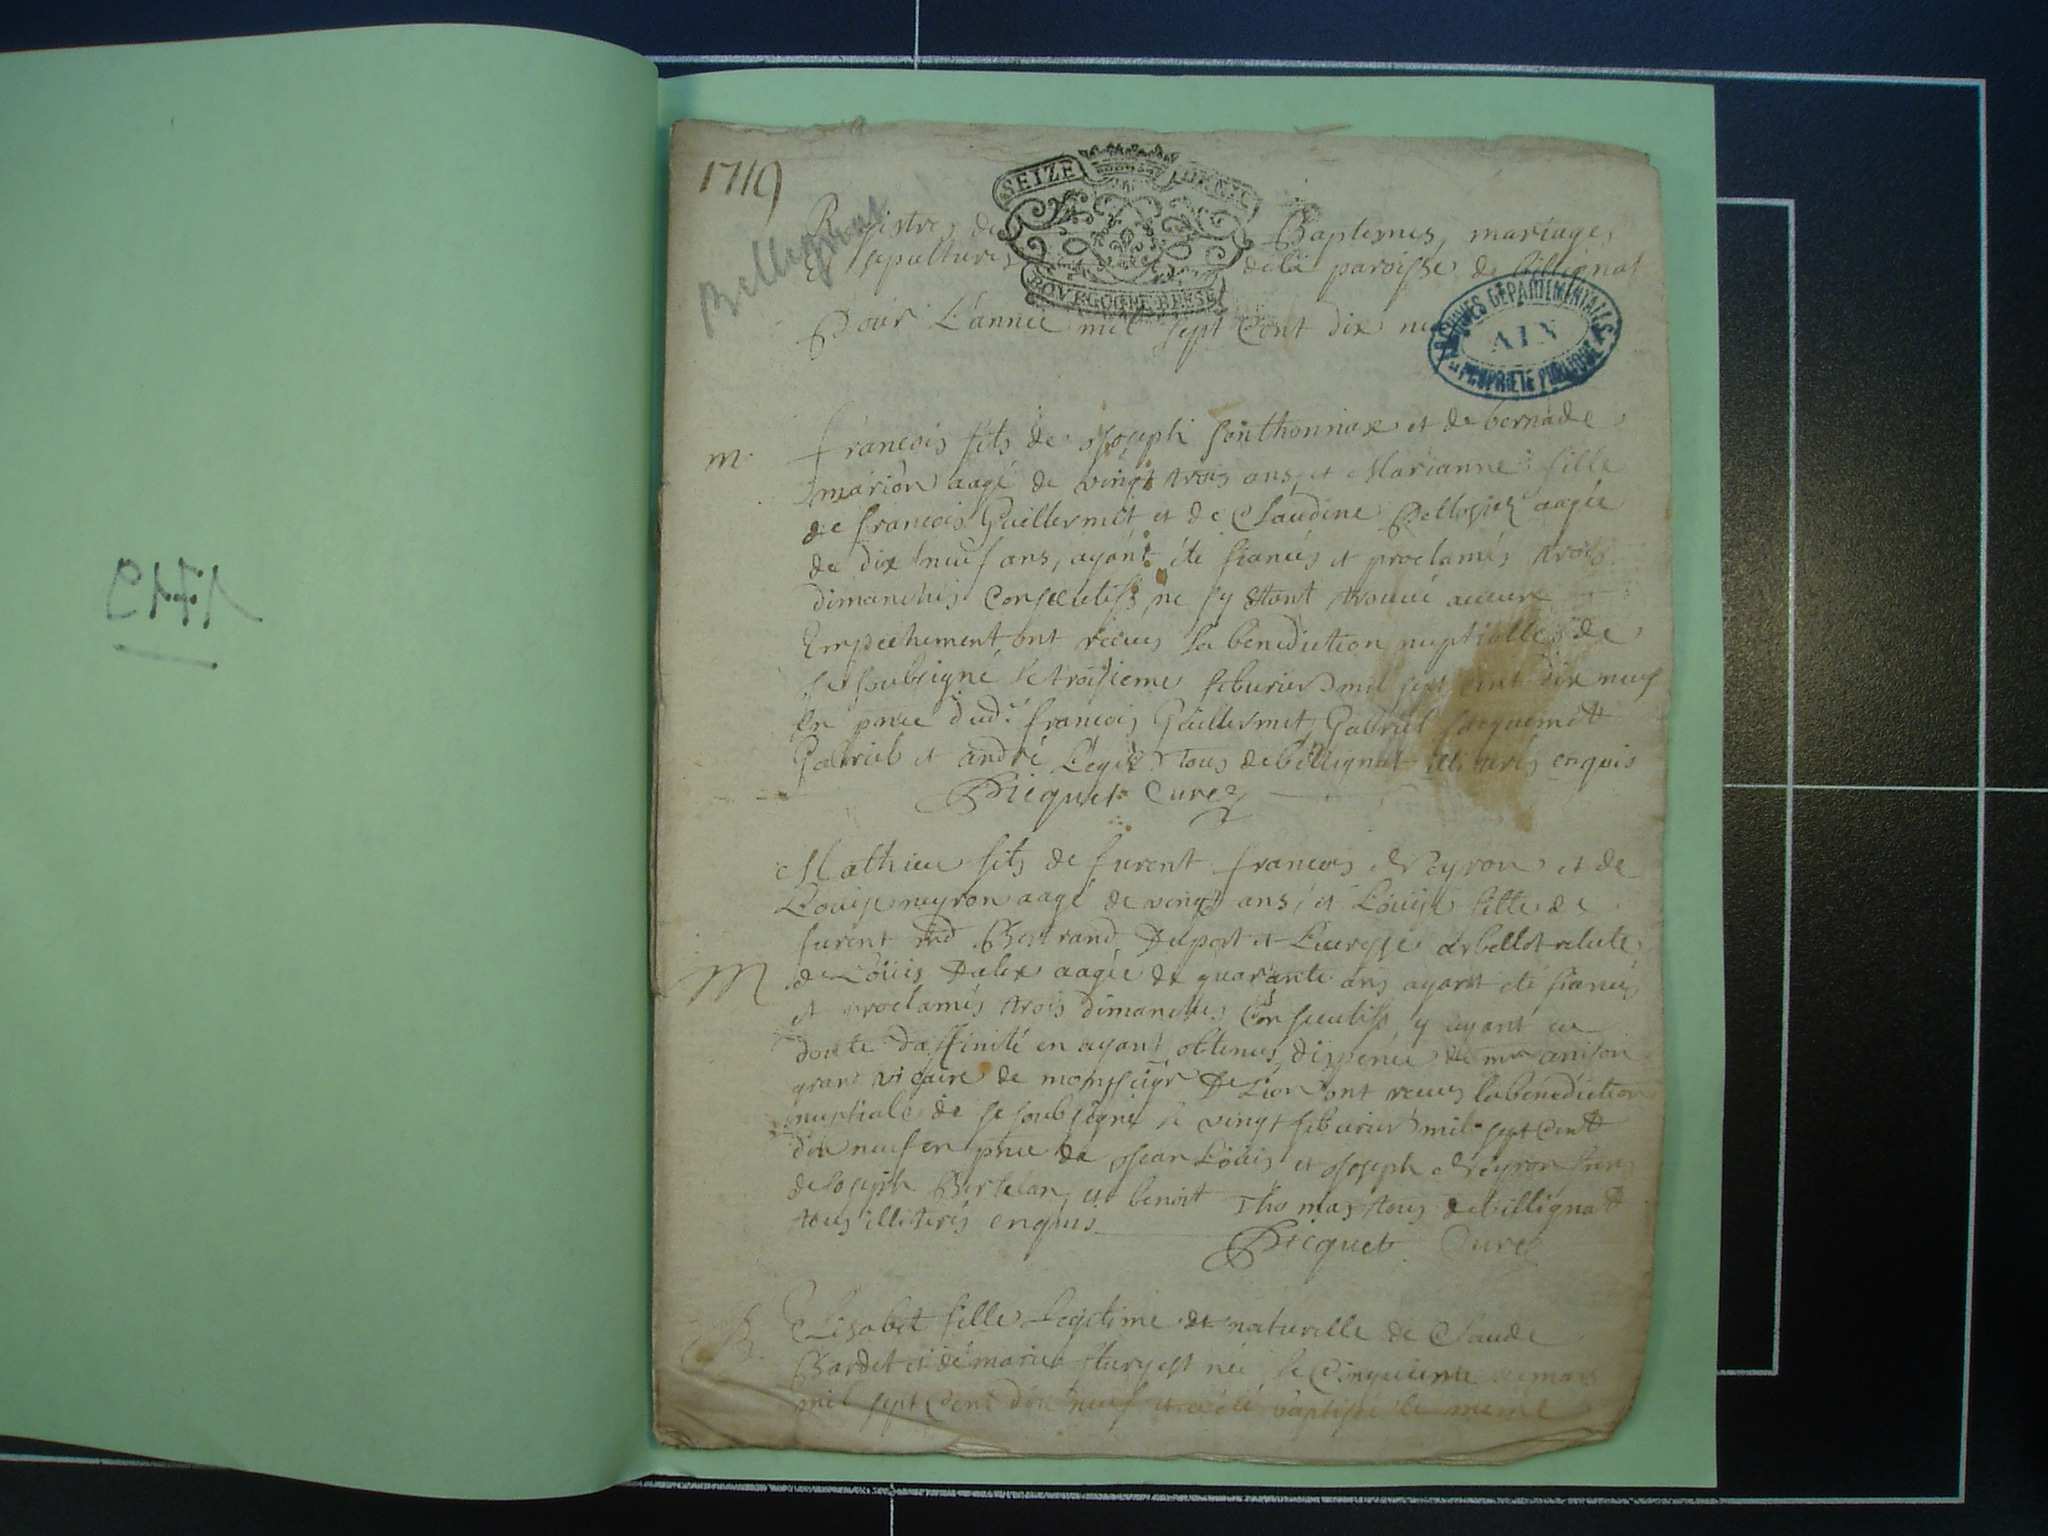 1719
1719
Bellignat
SEIZE DENIE
BOURGOGNE BRESSE
Registre de Baptesmes, mariages
Et sepultures de la paroisse de billignat
Pour L'année mil sept Cent dix
ARCHIVES DEPARTEMENTALES
AIN
PROPRIETE PUBLIQUE
m
francois fils de Joseph Sonthonnax et de bernade
marion aagé de vingt trois ans, et Marianne fille
de francois Guillermet et de Claudine aagée
de dix neuf ans, ayant été fiancés et proclamés trois
dimanches Consecutifs ne sy Estant trouué aucun
Empechement, ont receus la benediction nuptialle de
le soubsigné le troisieme feburier mil sept cent dix neuf
En pnce dud. francois Guillermet, Gabriel Jacquemett
Gabriel et andré Leger tous de billignat illiterés enquis
Picquet Curez
m
Mathieu fils de furent francois Neyron et de
Louise neyron aagé de vingt ans, et Louise fille de
furent Bertrand Duport et Lucresse arbellot relicte
de Louis Dalex aagée de quarante ans ayant été fiancés
et proclamés trois dimanches Consecutifs, y ayant eu
doute daffinité en ayant obtenus dispence de mr anison
grand vicaire de monseigr De Lion ont receus la benediction
nuptiale de le soubsigné le vingt feburier mil sept Centt
dix neuf en pnce de Jean Louis et Joseph Neyron freres
de Joseph Bertelan, et benoit Thomas tous de billignatt
tous illiterés enquis
Picquet Curé
B.
Elisabet fille Legitime et naturelle de Claude
Bardet et de marie est née le Cinquieme mars
mil sept Cent dix neuf et a été baptisée le meme